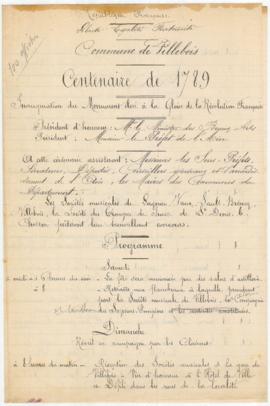 République Française
Liberté Egalité Fraternité
Commune de Villebois
Centenaire de 1789
Inauguration du Monument élevé à la Gloire de la Révolution Française
Président d'honneur : Mr le Ministre des Beaux Arts
Président : Monsieur le Préfet de l'Ain
Et à cette cérémonie assisteront : Messieurs les Sous-Préfets,
Sénateurs, Députés, Conseillers généraux et d'arrondisse-
ment de l'Ain, les Maires des Communes du
Département.
Les Sociétés musicales de Lagnieu,
Villebois, la Société des Trompes de chasse de St Denis, &
prêteront leur bienveillant concours.
Programme
Samedi
à midi & 6 heures du soir - La fête sera annoncée par des salves d'artillerie
à 8 - Retraite aux flambeaux à laquelle prendront
part la Société musicale de Villebois, la Compagnie
de Sapeurs-Pompiers et les autorités constituées.
Dimanche
Réveil en campagne par les Clairons
à 8 heures du matin - Réception des Sociétés musicales à la gare de
Villebois - Vin d'honneur à l'Hôtel de Ville
et Défilé dans les rues de la localité.